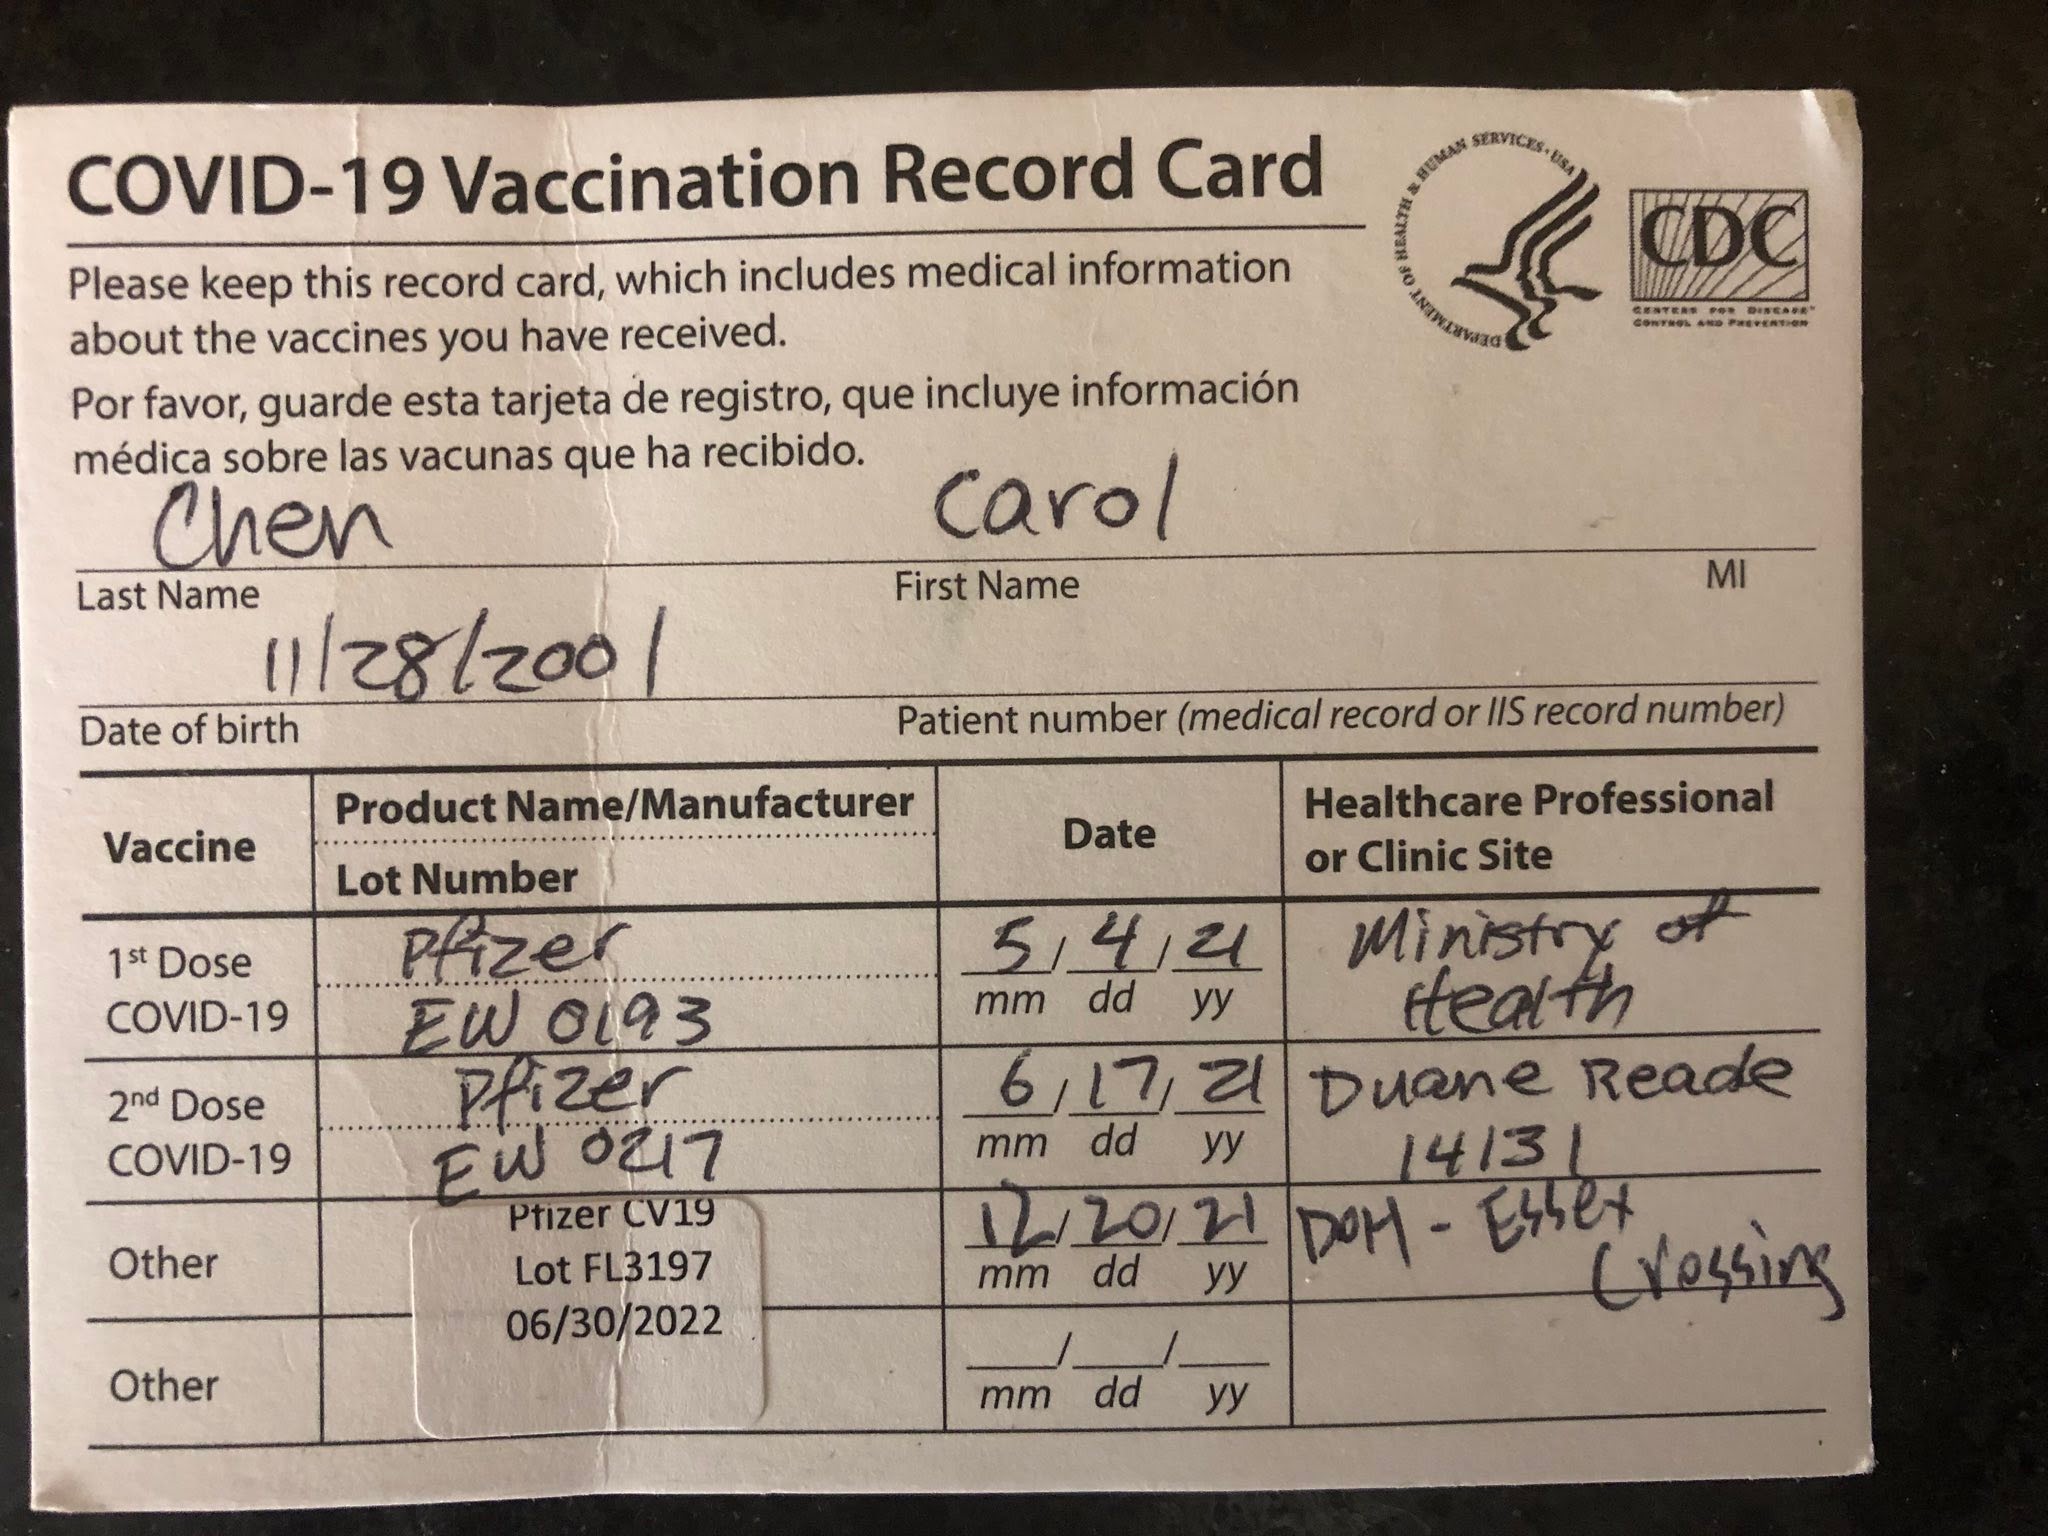 COVID-19 Vaccination Record Card
DEPARTMENT OF HEALTH & HUMAN SERVICES · USA
CDC
CENTERS FOR DISEASE
CONTROL AND PREVENTION
Please keep this record card, which includes medical information
about the vaccines you have received.
Por favor, guarde esta tarjeta de registro, que incluye información
médica sobre las vacunas que ha recibido.
Chen Carol
Last Name First Name MI
11/28/2001
Date of birth Patient number (medical record or IIS record number)
Vaccine
Product Name/Manufacturer
Lot Number
Date
Healthcare Professional
or Clinic Site
1st Dose
COVID-19
Pfizer
EW 0193
5/4/21
mm dd yy
Ministry of
Health
2nd Dose
COVID-19
Pfizer
EW 0217
6/17/21
mm dd yy
Duane Reade
14131
Other
Pfizer CV19
Lot FL3197
06/30/2022
12/20/21
mm dd yy
DOH - Essex
Crossing
Other
/ /
mm dd yy